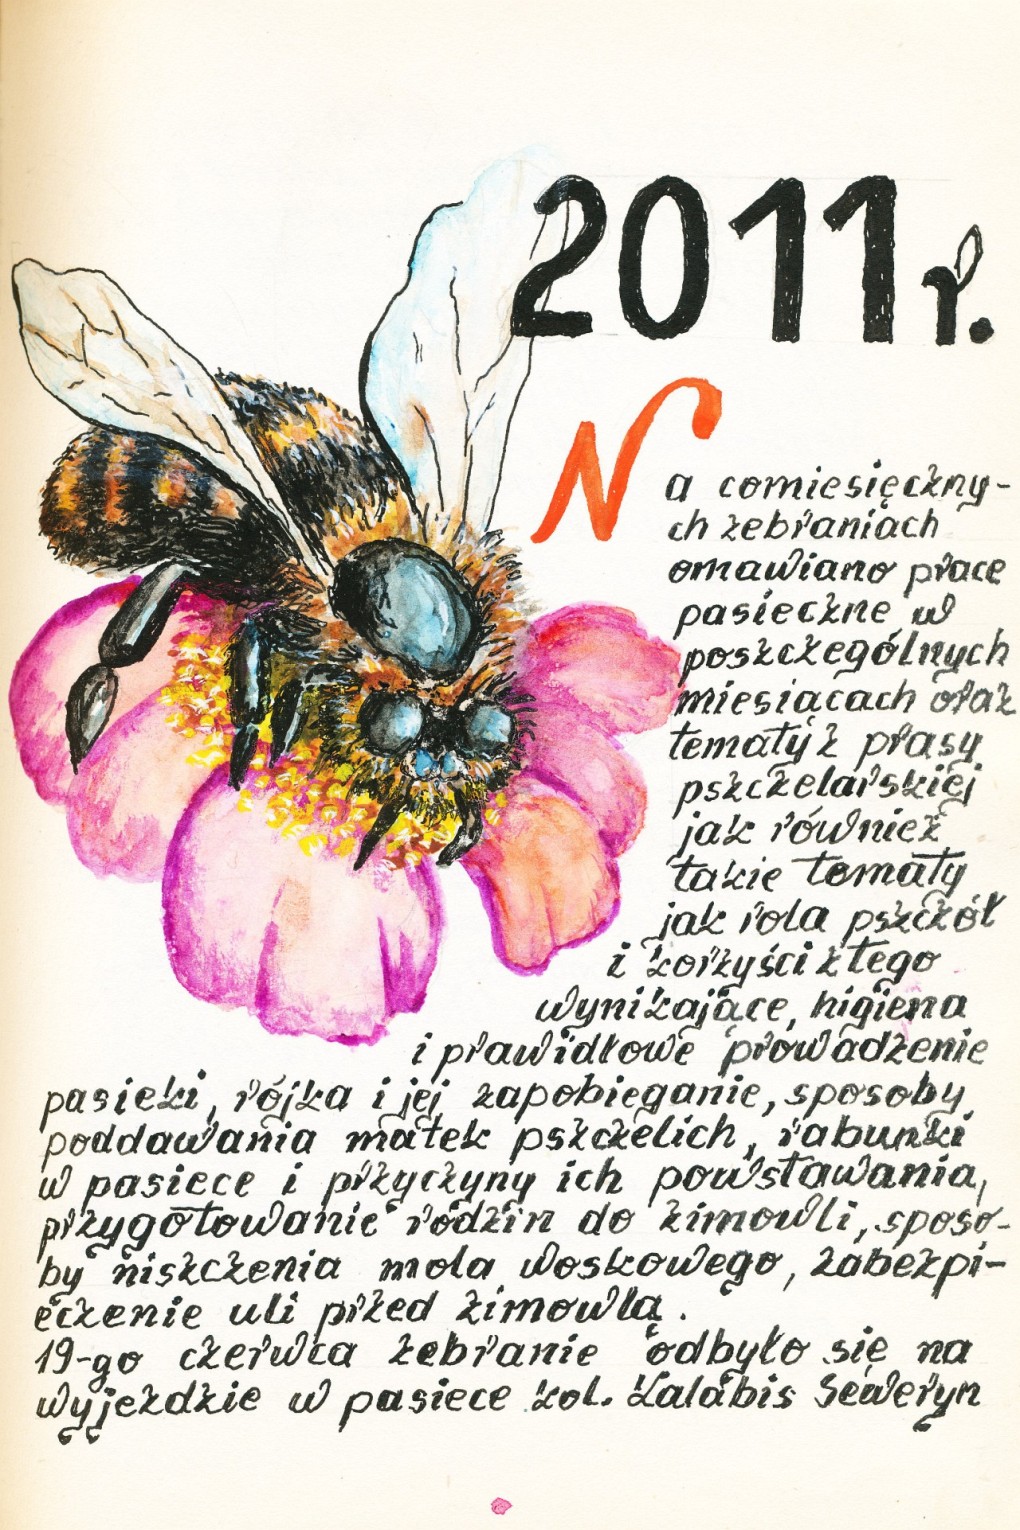 2011 r.
Na comiesięczny-
ch zebraniach
omawiano prace
pasieczne w
poszczególnych
miesiącach oraz
tematy z prasy
pszczelarskiej
jak również
takie tematy
jak rola pszczół
i korzyści z tego
wynikające, higiena
i prawidłowe prowadzenie
pasieki, rójka i jej zapobieganie, sposoby
poddawania matek pszczelich, rabunki
w pasiece i przyczyny ich powstawania,
przygotowanie rodzin do zimowli, sposo-
by niszczenia mola woskowego, zabezpi-
eczenie uli przed zimowlą.
19-go czerwca zebranie odbyło się na
wyjezdzie w pasiece kol. Kalabis Seweryn